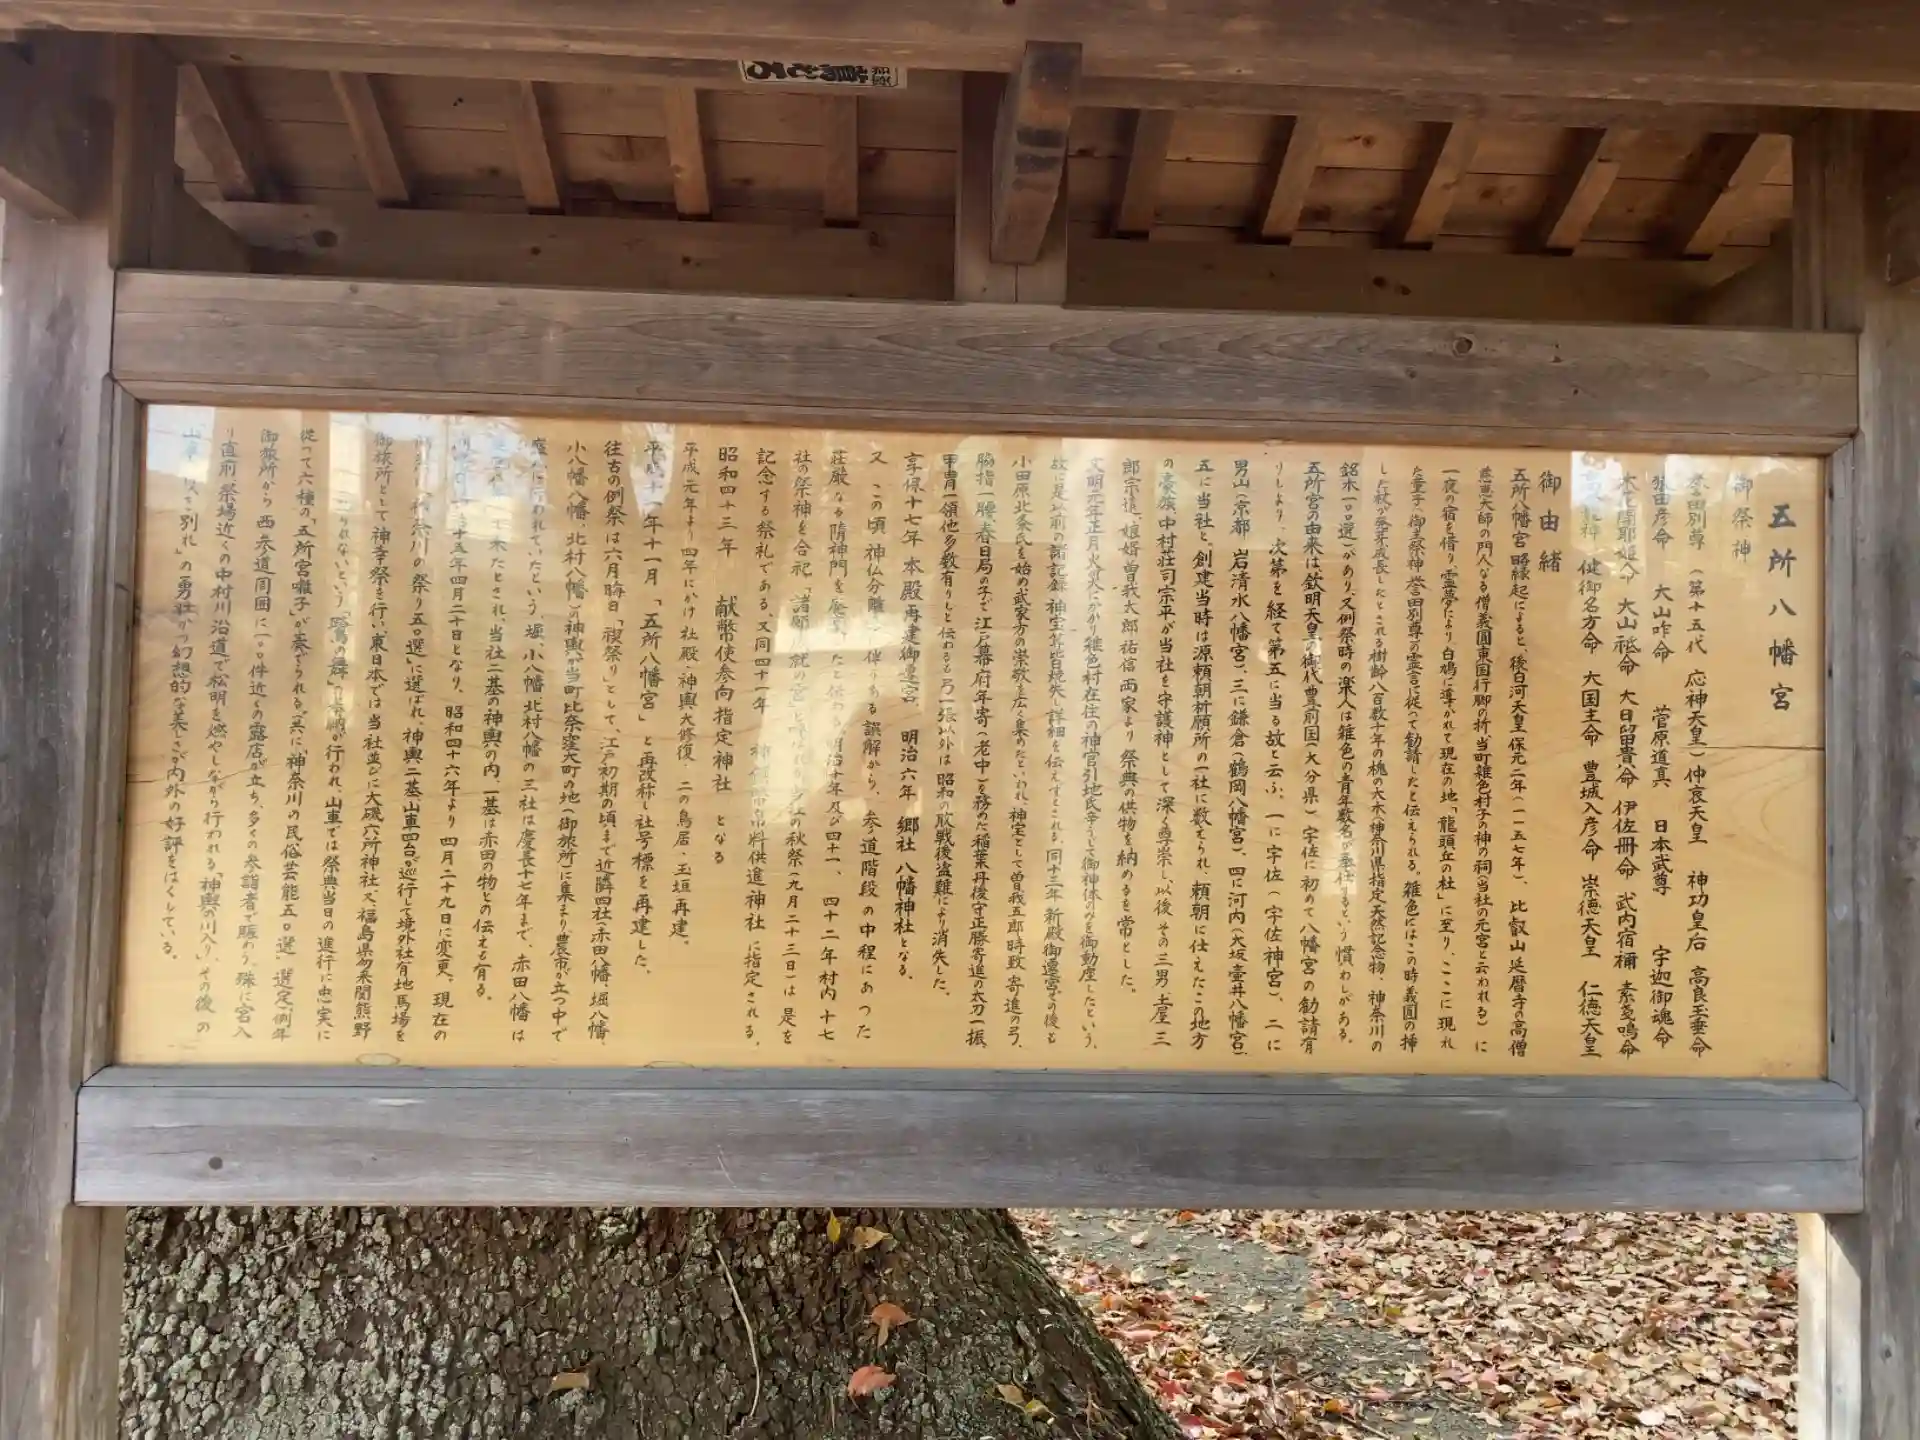 五所八幡宮
御祭神
誉田別尊 (第十五代 応神天皇) 仲哀天皇 神功皇后 高良玉垂命
猿田彦命 大山咋命 菅原道真 日本武尊 宇迦御魂命
木花開耶姫命 大山祗命 大日留貴命 伊佐冊命 武内宿禰 素戔嗚命
健御名方命 大国主命 豊城入彦命 崇徳天皇 仁徳天皇
御由緒
五所八幡宮略縁起によると、後白河天皇保元二年(一一五七年)、比叡山延暦寺の高僧
慈恵大師の門人なる僧義圓東国行脚の折、当町雑色村子の神の祠(当社の元宮と云われる)に
一夜の宿を借り、霊夢により白鳩に導かれて現在の地「龍頭丘の杜」に至り、ここに現れ
た童子、御主祭神誉田別尊の霊言に従って勧請したと伝えられる。雑色にはこの時義圓の挿
した杖が発芽成長したとされる樹齢八百数十年の槐の大木(神奈川県指定天然記念物、神奈川の
銘木一〇〇選)があり、又例祭時の楽人は雑色の青年数名が奉仕するという慣わしがある。
五所宮の由来は、欽明天皇の御代豊前国(大分県)宇佐に初めて八幡宮の勧請有
りしより、次第を経て第五に当る故と云ふ、一に宇佐(宇佐神宮)、二に
男山(京都 岩清水八幡宮)、三に鎌倉(鶴岡八幡宮)、四に河内(大坂壷井八幡宮)、
五に当社と。創建当時は源頼朝祈願所の一社に数えられ、頼朝に仕えたこの地方
の豪族、中村荘司宗平が当社を守護神として深く尊崇し、以後その三男土屋三
郎宗遠、娘婿曽我太郎祐信両家より祭典の供物を納めるを常とした。
文明元年正月火災にかかり雑色村在住の神官引地氏辛うじて御神体のみを御動座したという、
故に是以前の諸記録神宝等皆焼失し詳細を伝えずとされる、同十三年新殿御遷宮その後も
小田原北条氏を始め武家方の崇敬を広く集めたといわれ、神宝として曽我五郎時致寄進の弓、
脇指一腰、春日局の子で江戸幕府年寄(老中)を務めた稲葉丹後守正勝寄進の太刀一振、
甲冑一領他多数有りしと伝わるも弓一張以外は昭和の敗戦後盗難により消失した。
享保十七年 本殿再建御遷宮、明治六年 郷社 八幡神社となる、
又 この頃 神仏分離に伴なる誤解から、参道階段の中程にあった
荘厳なる隋神門を廃したと伝わる。明治十年及び四十一、四十二年村内十七
社の祭神を合祀「諸願成就の宮」と呼ばれる当社の秋祭(九月二十三日)は是を
記念する祭礼である、又同四十一年 神饌幣帛料供進神社に指定される、
昭和四十三年 献幣使参向指定神社 となる
平成元年より四年にかけ社殿、神輿大修復、二の鳥居、玉垣再建。
平成十一年十一月「五所八幡宮」と再改称し社号標を再建した、
往古の例祭は六月晦日「禊祭り」として、江戸初期の頃まで近隣四社、赤田八幡、堀八幡、
小八幡八幡、北村八幡の神輿が当町比奈窪大町の地(御旅所)に集まり農市が立つ中で
盛大に行われていたという、堀、小八幡、北村八幡の三社は慶長十七年まで、赤田八幡は
たとされ、当社二基の神輿の内、一基は赤田の物との伝えも有る。
十五年四月二十日となり、昭和四十六年より四月二十九日に変更、現在の
神奈川の祭り五〇選」に選ばれ、神輿二基山車四台が巡行して境外社有地馬場を
御旅所として神幸祭を行い、東日本では当社並びに大磯六所神社、又、福島県勿来関熊野
られないという「鷺の舞」の奉納が行われ、山車では祭典当日の進行に忠実に
従って六種の「五所宮囃子」が奏でられる。(共に「神奈川の民俗芸能五〇選」選定)例年
御旅所から西参道周囲に一〇〇件近くの露店が立ち、多くの参詣者で賑わう。殊に宮入
り直前、祭場近くの中村川沿道で松明を燃やしながら行われる「神輿の川入り」、その後の
別れ」の勇壮かつ幻想的な美しさが内外の好評をはくしている。